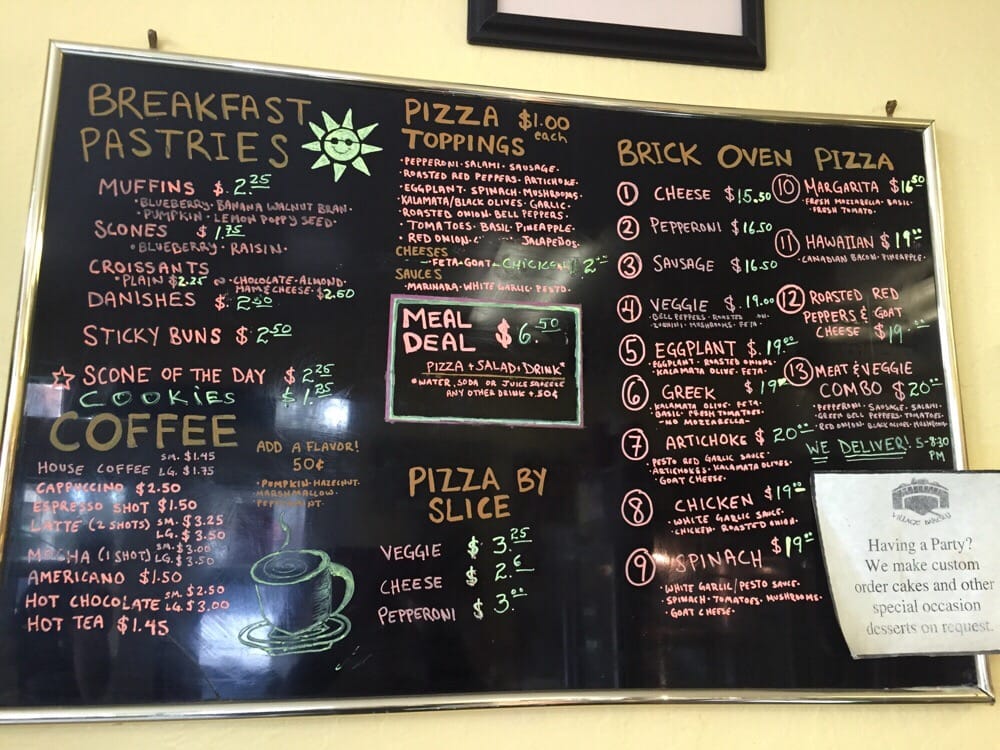 BREAKFAST
PASTRIES
MUFFINS $ 2.25
• BLUEBERRY • BANANA WALNUT BRAN •
• PUMPKIN • LEMON POPPY SEED •
SCONES $ 1.75
• BLUEBERRY • RAISIN •
CROISSANTS
• PLAIN $2.25 • CHOCOLATE • ALMOND •
HAM & CHEESE • $2.50
DANISHES $ 2.50
STICKY BUNS $ 2.50
☆ SCONE OF THE DAY $ 2.25
COOKIES $ 1.25
COFFEE
HOUSE COFFEE SM. $1.45
LG. $1.75
CAPPUCCINO $2.50
ESPRESSO SHOT $1.50
LATTE (2 SHOTS) SM. $3.25
LG. $3.50
MOCHA (1 SHOT) SM. $3.00
LG. $3.50
AMERICANO $1.50
HOT CHOCOLATE SM. $2.50
LG. $3.00
HOT TEA $1.45
ADD A FLAVOR!
50¢
• PUMPKIN • HAZELNUT •
MARSHMALLOW •
PEPPERMINT •
PIZZA $1.00
TOPPINGS each
• PEPPERONI • SALAMI • SAUSAGE •
ROASTED RED PEPPERS • ARTICHOKE •
EGGPLANT • SPINACH • MUSHROOMS •
KALAMATA/BLACK OLIVES • GARLIC •
ROASTED ONION • BELL PEPPERS •
TOMATOES • BASIL • PINEAPPLE •
RED ONION • JALAPEÑOS •
CHEESES
- FETA • GOAT - CHICKEN 2
SAUCES
• MARINARA • WHITE GARLIC • PESTO •
MEAL
DEAL $ 6.50
PIZZA + SALAD + DRINK*
* WATER, SODA OR JUICE SQUEEZE
ANY OTHER DRINK + .50¢
PIZZA BY
SLICE
VEGGIE $ 3.25
CHEESE $ 2.
PEPPERONI $ 3.00
BRICK OVEN PIZZA
1 CHEESE $15.50
2 PEPPERONI $16.50
3 SAUSAGE $16.50
4 VEGGIE $ 19.00
BELL PEPPERS • ROASTED
ZUCHINI • MUSHROOMS • FETA •
5 EGGPLANT $ 19.00
EGGPLANT • ROASTED ONIONS •
KALAMATA OLIVE • FETA •
6 GREEK $ 19
• KALAMATA OLIVE • FETA •
BASIL • FRESH TOMATOES •
- NO MOZZARELLA -
7 ARTICHOKE $ 20.00
PESTO RED GARLIC SAUCE •
ARTICHOKES • KALAMATA OLIVES •
• GOAT CHEESE •
8 CHICKEN $19.00
• WHITE GARLIC SAUCE •
CHICKEN • ROASTED ONION •
9 SPINACH $19.00
WHITE GARLIC/PESTO SAUCE •
SPINACH • TOMATOES • MUSHROOMS •
• GOAT CHEESE •
10 MARGARITA $16.50
FRESH MOZZARELLA • BASIL •
• FRESH TOMATO •
11 HAWAIIAN $19.00
CANADIAN BACON • PINEAPPLE •
12 ROASTED RED
PEPPERS & GOAT
CHEESE $19
13 MEAT & VEGGIE
COMBO $20
• PEPPERONI • SAUSAGE • SALAMI •
GREEN BELL PEPPERS • TOMATOES •
• RED ONION • BLACK OLIVES • MUSHROOM •
WE DELIVER! 5-8:30
PM
VILLAGE BAKERY
Having a Party?
We make custom
order cakes and other
special occasion
desserts on request.